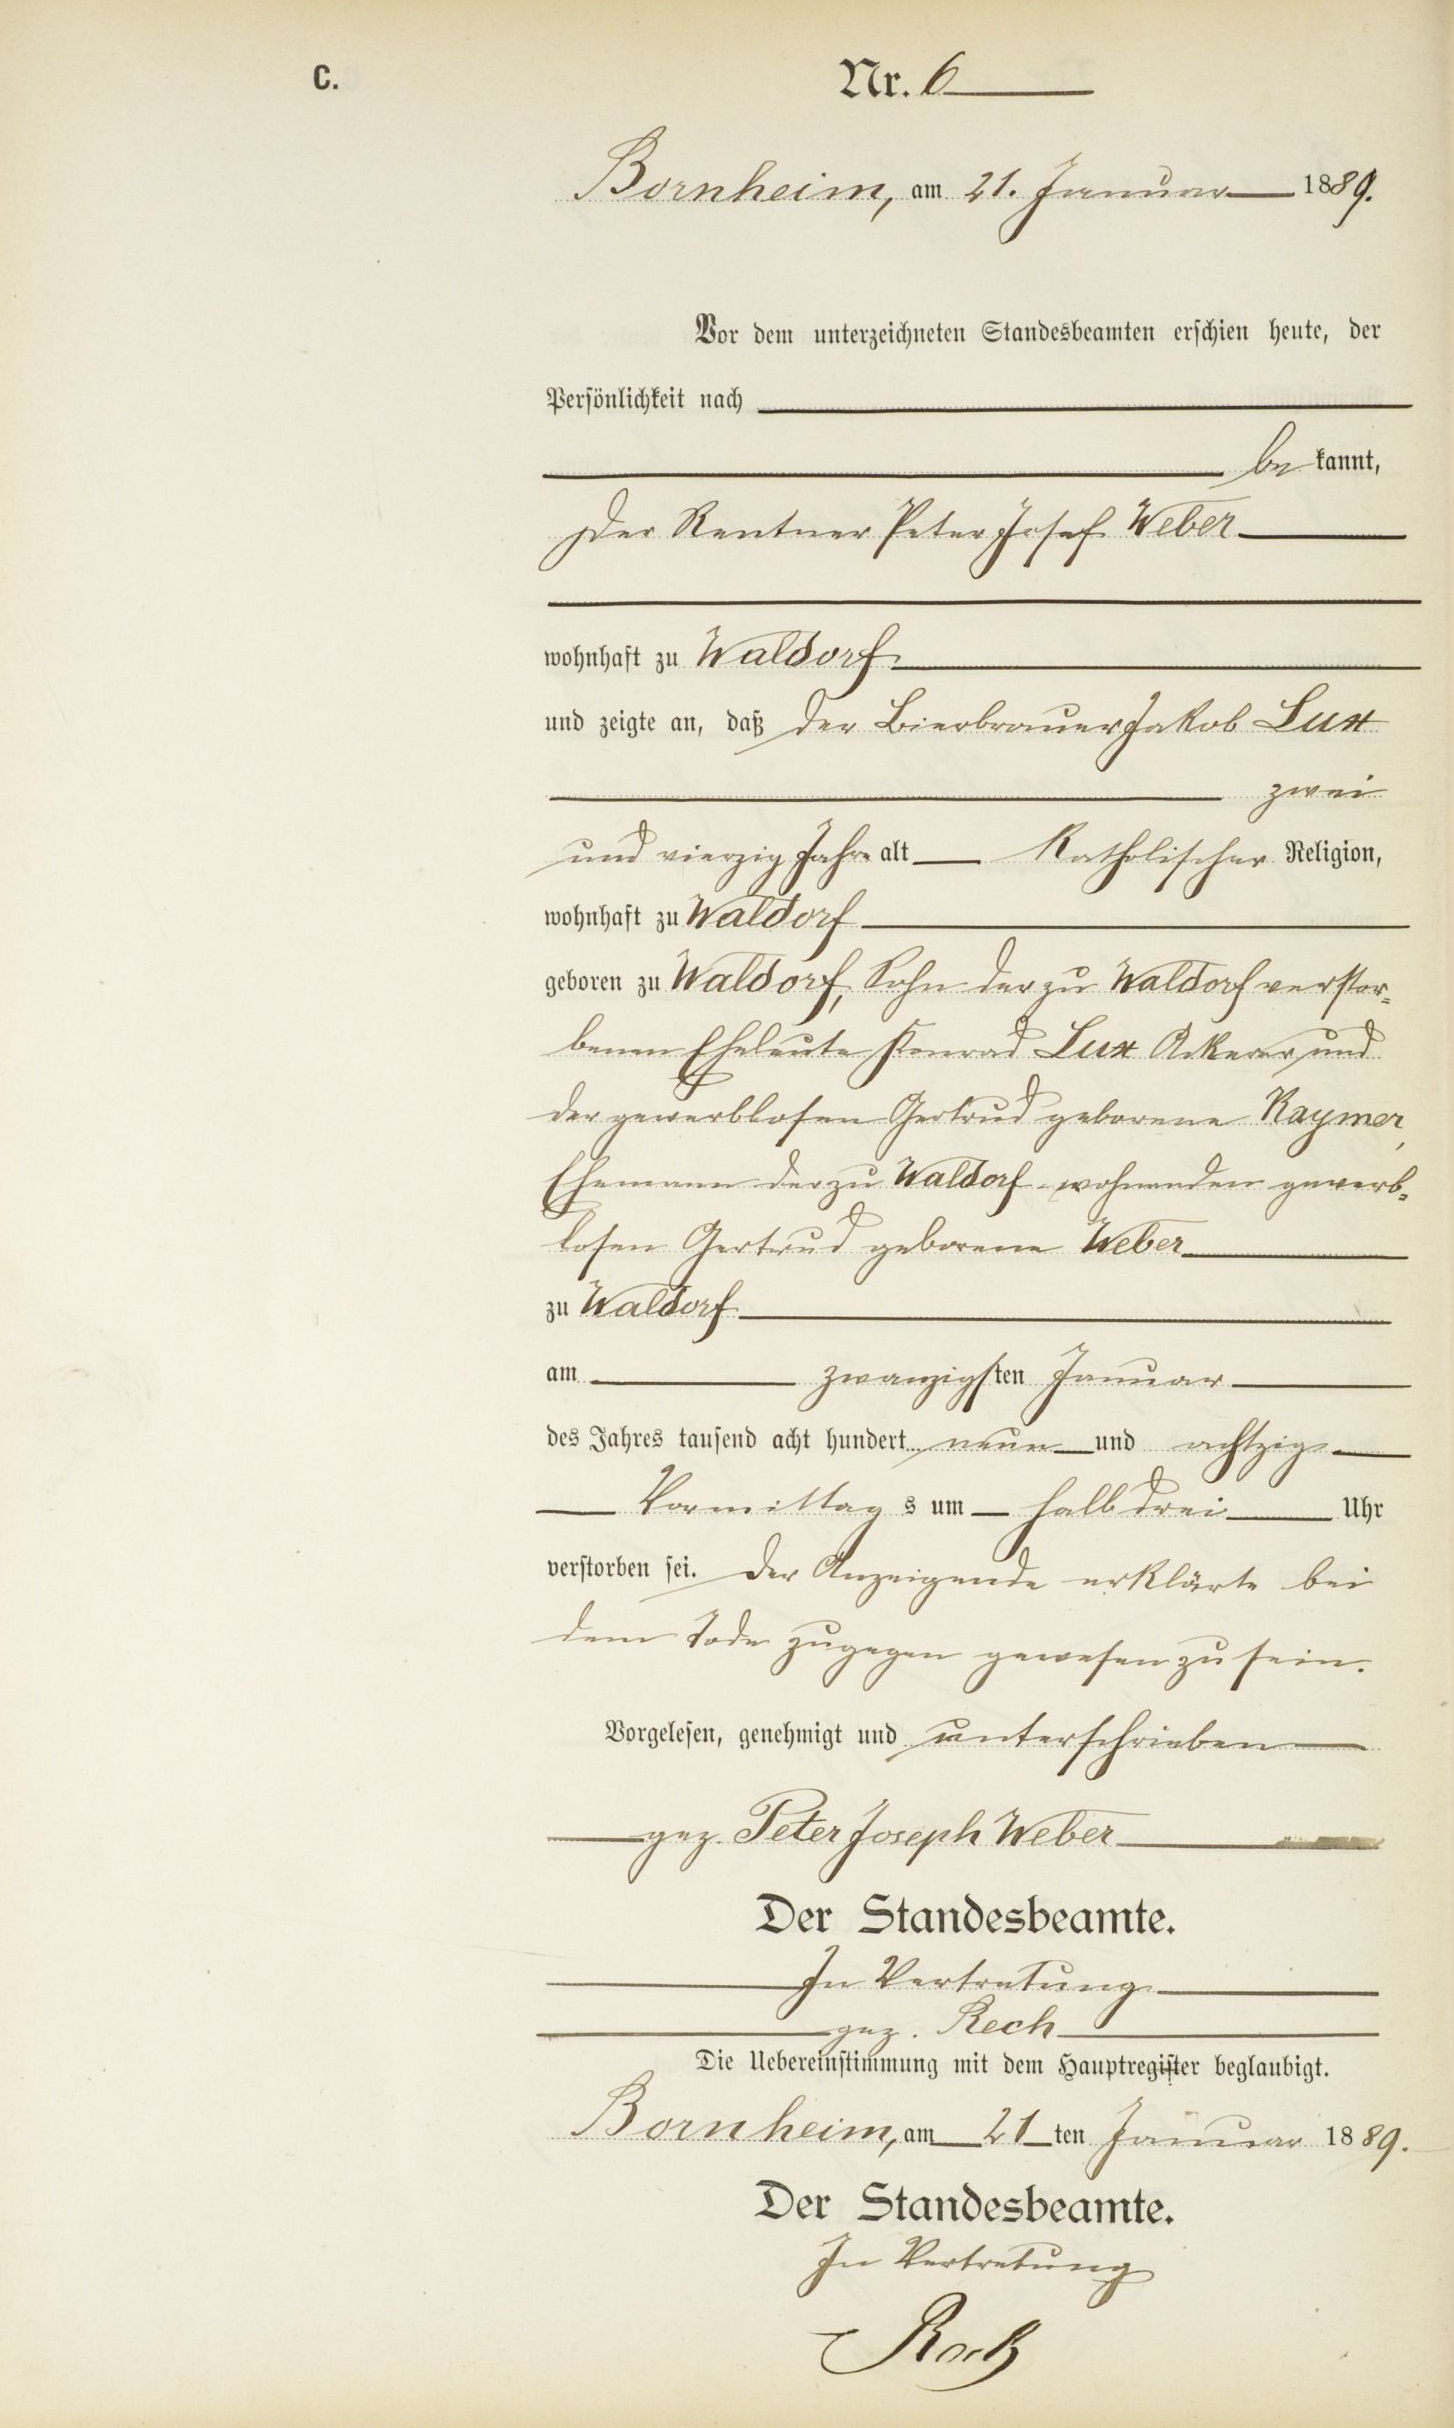 C.
Nr. 6
Bornheim, am 21. Januar 1889.
Vor dem unterzeichneten Standesbeamten erschien heute, der
Persönlichkeit nach
be kannt,
der Rentner Peter Josef Weber
wohnhaft zu Waldorf
und zeigte an, daß der Bierbrauer Jakob Lux
zwei
und vierzig Jahre alt katholischer Religion,
wohnhaft zu Waldorf
geboren zu Waldorf, Sohn der zu Waldorf verstor=
benen Eheleute Konrad Lux Ackerer und
der gewerblosen Gertrud geborene Raymer,
Ehemann der zu Waldorf wohnenden gewerb=
losen Gertrud geborene Weber
zu Waldorf
am zwanzigsten Januar
des Jahres tausend acht hundert neun und achtzig
Vormittag s um halb drei Uhr
verstorben sei. Der Anzeigende erklärte bei
dem Tode zugegen gewesen zu sein.
Vorgelesen, genehmigt und unterschrieben
gez. Peter Joseph Weber
Der Standesbeamte.
In Vertretung
gez. Rech
Die Uebereinstimmung mit dem Hauptregister beglaubigt.
Bornheim, am 21 ten Januar 1889.
Der Standesbeamte.
In Vertretung
Rech